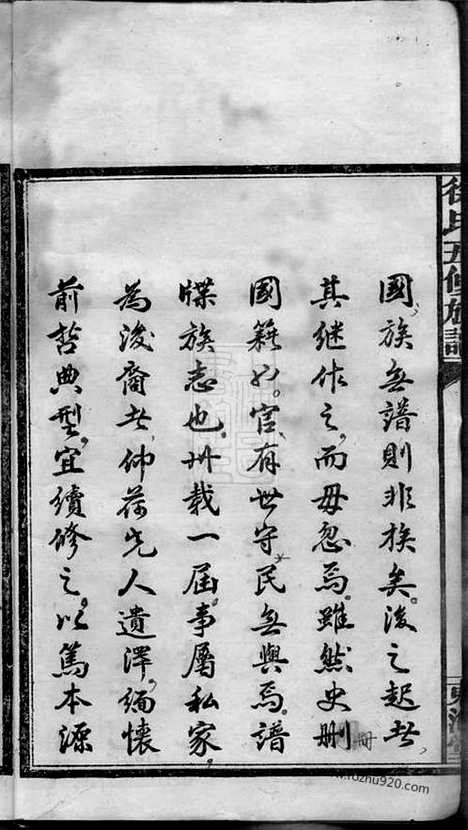 國族無譜則非族矣後之起者
其继作之而毋忽焉雖然史刪
國籍也官有世守民無與焉譜
牒族志也卅载一届事屬私家
為後裔者仰荷先人遺澤緬懷
前哲典型宜續修之以篤本源
徐氏五修族譜
www.fozhu920.com